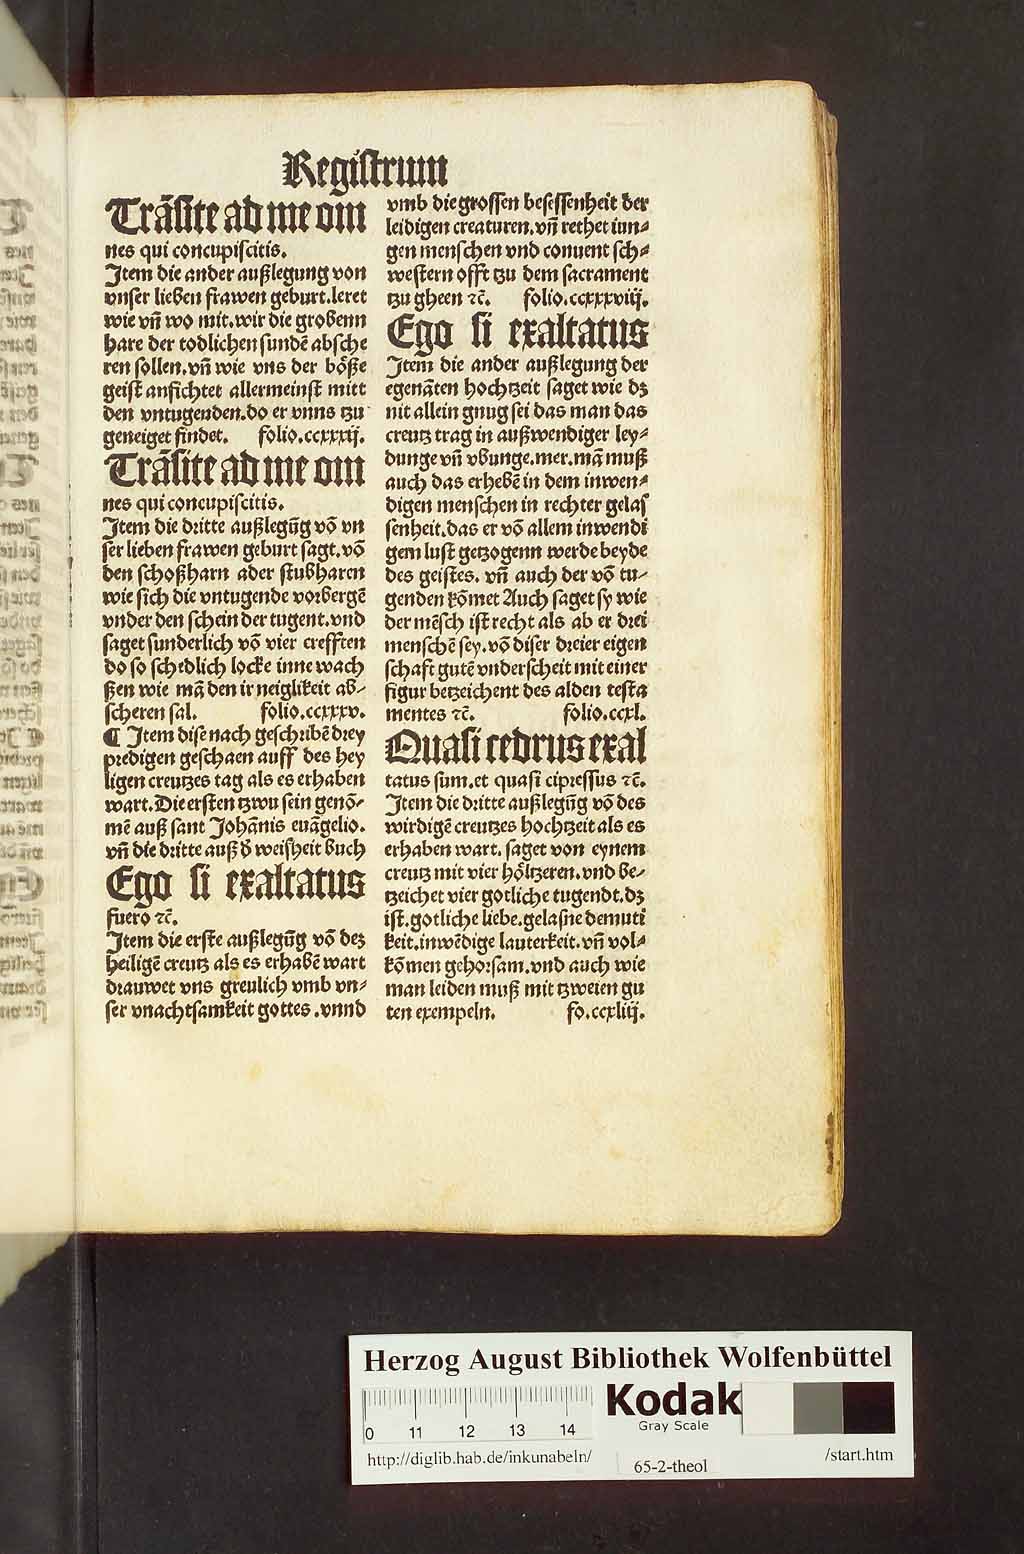 Registrum
Trãsite ad me om
nes qui concupiscitis.
Item die ander außlegung von
vnser lieben frawen geburt.leret
wie vñ wo mit.wir die grobenn
hare der todlichen sundẽ absche
ren sollen.vñ wie vns der bößze
geist anfichtet allermeinst mitt
den vntugenden.do er vnns tzu
geneiget findet. folio.ccxxxij.
Trãsite ad me om
nes qui concupiscitis.
Item die dritte außlegũg võ vn
ser lieben frawen geburt sagt.võ
den schoßharn ader stubharen
wie sich die vntugende vorbergẽ
vnder den schein der tugent.vnd
saget sunderlich võ vier crefften
do so schedlich locke inne wach
ßen wie mã den ir neiglikeit ab⸗
scheren sal. folio.ccxxxv.
¶ Item dise nach geschribẽ drey
predigen geschaen auff des hey
ligen creutzes tag als es erhaben
wart.Die ersten tzwu sein genõ⸗
mẽ auß sant Johãnis euãgelio.
vñ die dritte auß d̕ weisheit buch
Ego si exaltatus
fuero ⁊c̃.
Item die erste außlegũg võ dez
heiligẽ creutz als es erhabẽ wart
drauwet vns greulich vmb vn⸗
ser vnachtsamkeit gottes .vnnd
vmb die grossen besessenheit der
leidigen creaturen.vñ rethet iun⸗
gen menschen vnd conuent sch⸗
western offt tzu dem sacrament
tzu gheen ⁊c̃. folio.ccxxxviij.
Ego si exaltatus
Item die ander außlegung der
egenãten hochtzeit saget wie dz
nit allein gnug sei das man das
creutz trag in außwendiger ley⸗
dunge vñ vbunge.mer.mã muß
auch das erhebẽ in dem inwen⸗
digen menschen in rechter gelas
senheit.das er võ allem inwendi
gem lust getzogenn werde beyde
des geistes. vñ auch der võ tu⸗
genden kõmet Auch saget sy wie
der mẽsch ist recht als ab er drei
menschẽ sey.võ diser dreier eigen
schaft gutẽ vnderscheit mit einer
figur betzeichent des alden testa
mentes ⁊c̃. folio.ccxl.
Quasi cedrus exal
tatus sum.et quasi cipressus ⁊c̃.
Item die dritte außlegũg võ des
wirdigẽ creutzes hochtzeit als es
erhaben wart. saget von eynem
creutz mit vier höltzeren.vnd be⸗
tzeichet vier gotliche tugendt.dz
ist.gotliche liebe.gelasne demuti
keit.inwẽdige lauterkeit.vñ vol⸗
kõmen gehorsam.vnd auch wie
man leiden muß mit tzweien gu
ten exempeln. fo.ccxliij.
Herzog August Bibliothek Wolfenbüttel
0 11 12 13 14
Kodak
Gray Scale
http://diglib.hab.de/inkunabeln/
65-2-theol
/start.htm